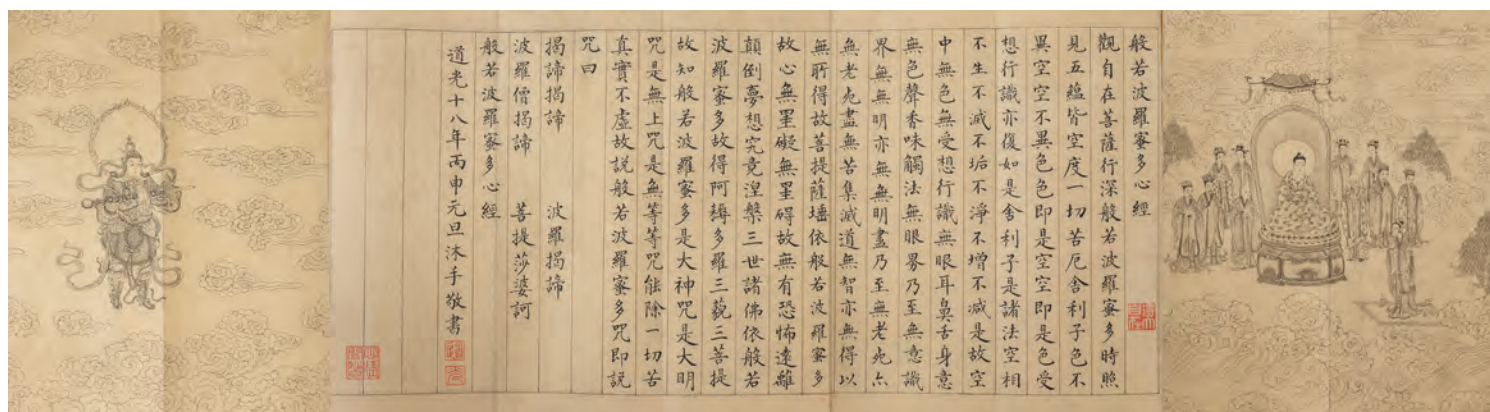 般若波羅蜜多心經
觀自在菩薩行深般若波羅蜜多時照
見五蘊皆空度一切苦厄舍利子色不
異空空不異色色即是空空即是色受
想行識亦復如是舍利子是諸法空相
不生不滅不垢不淨不增不減是故空
中無色無受想行識無眼耳鼻舌身意
無色聲香味觸法無眼界乃至無意識
界無無明亦無無明盡乃至無老死亦
無老死盡無苦集滅道無智亦無得以
無所得故菩提薩埵依般若波羅蜜多
故心無罣礙無罣碍故無有恐怖遠離
顛倒夢想究竟涅槃三世諸佛依般若
波羅蜜多故得阿耨多羅三藐三菩提
故知般若波羅蜜多是大神咒是大明
咒是無上咒是無等等咒能除一切苦
真實不虛故說般若波羅蜜多咒即說
咒曰
揭諦揭諦 波羅揭諦
波羅僧揭諦 菩提莎婆訶
般若波羅蜜多心經
道光十八年丙申元旦沐手敬書